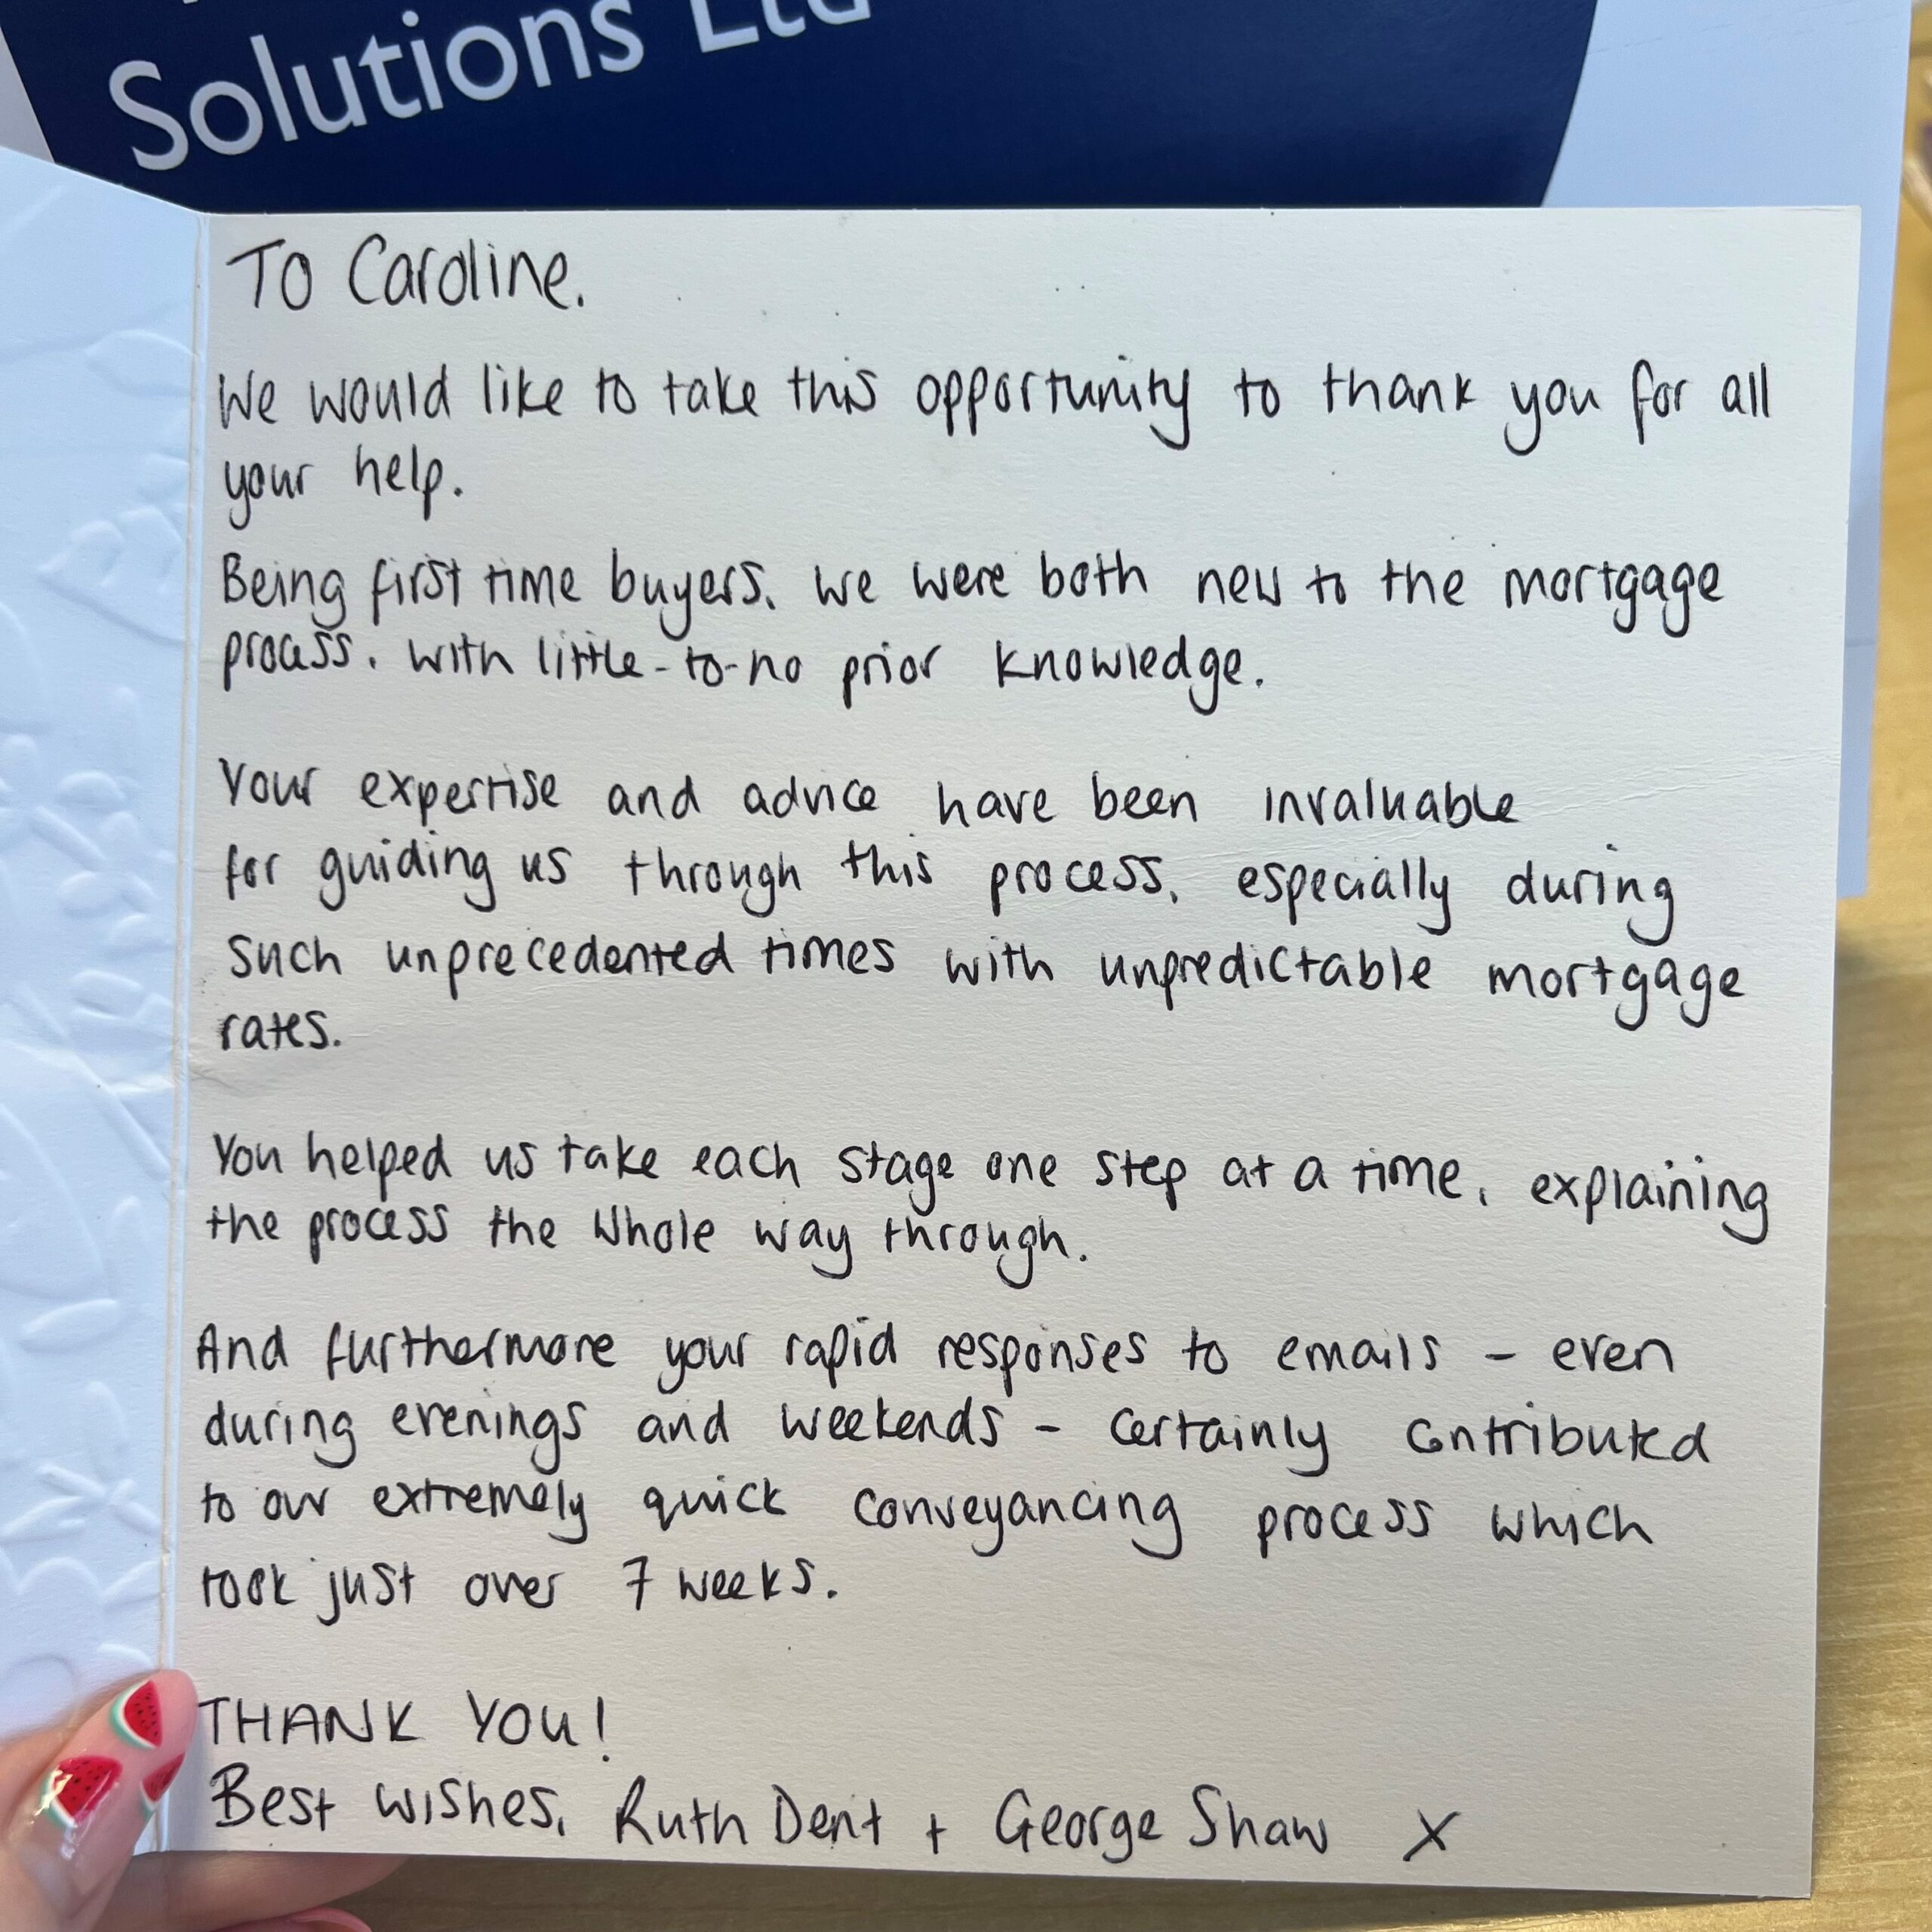 Solutions Ltd
To Caroline.
We would like to take this opportunity to thank you for all
your help.
Being first time buyers, we were both new to the mortgage
process, with little-to-no prior knowledge.
Your expertise and advice have been invaluable
for guiding us through this process, especially during
such unprecedented times with unpredictable mortgage
rates.
You helped us take each stage one step at a time, explaining
the process the whole way through.
And furthermore your rapid responses to emails - even
during evenings and weekends - certainly contributed
to our extremely quick conveyancing process which
took just over 7 weeks.
THANK YOU!
Best wishes, Ruth Dent + George Shaw X